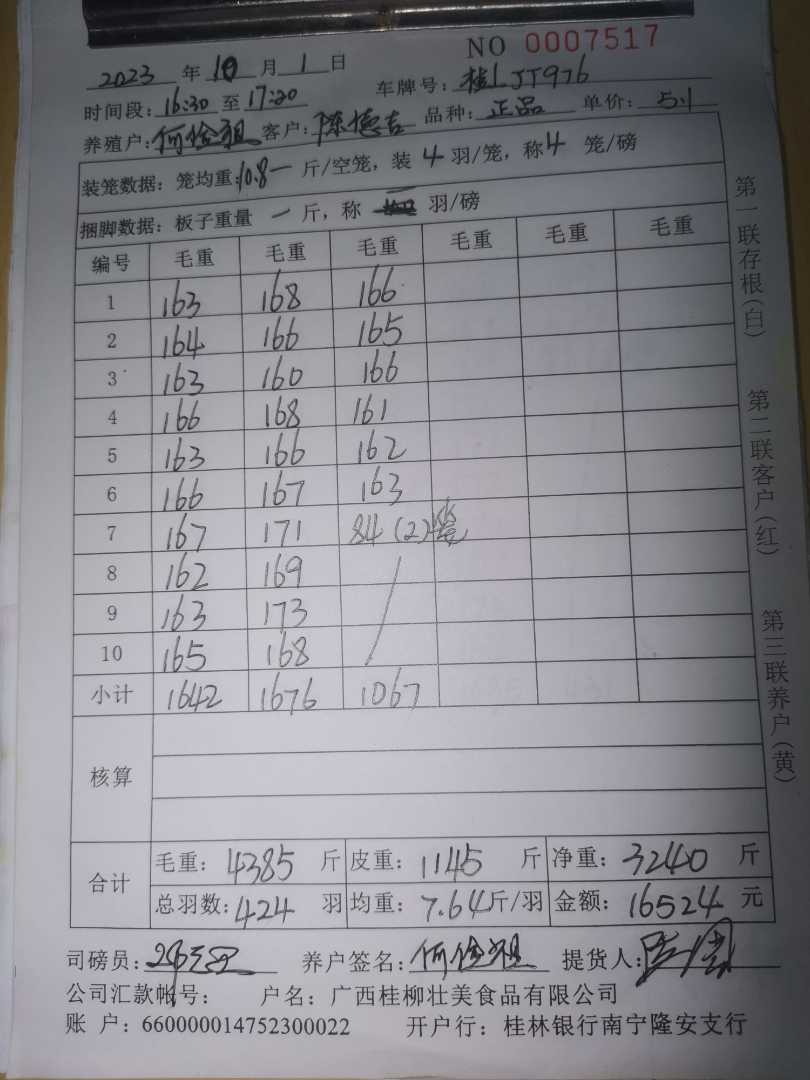 NO 0007517
2023 年 10 月 1 日
时间段: 16:30 至 17:20 车牌号: 桂L JT976
养殖户: 何俭祖 客户: 陈德吉 品种: 正品 单价: 5.1
装笼数据: 笼均重: 10.8 一 斤/空笼, 装 4 羽/笼, 称 4 笼/磅
捆脚数据: 板子重量 一 斤, 称 羽/磅
编号 毛重 毛重 毛重 毛重 毛重 毛重
1 163 168 166
2 164 166 165
3 163 160 166
4 166 168 161
5 163 166 162
6 166 167 163
7 167 171 84 (2)
8 162 169 /
9 163 173
10 165 168
小计 1642 1676 1067
核算
合计 毛重: 4385 斤 皮重: 1145 斤 净重: 3240 斤
总羽数: 424 羽 均重: 7.64 斤/羽 金额: 16524 元
司磅员: 养户签名: 何俭祖 提货人:
公司汇款帐号: 户名: 广西桂柳壮美食品有限公司
账 户: 660000014752300022 开户行: 桂林银行南宁隆安支行
第一联存根(白) 第二联客户(红) 第三联养户(黄)